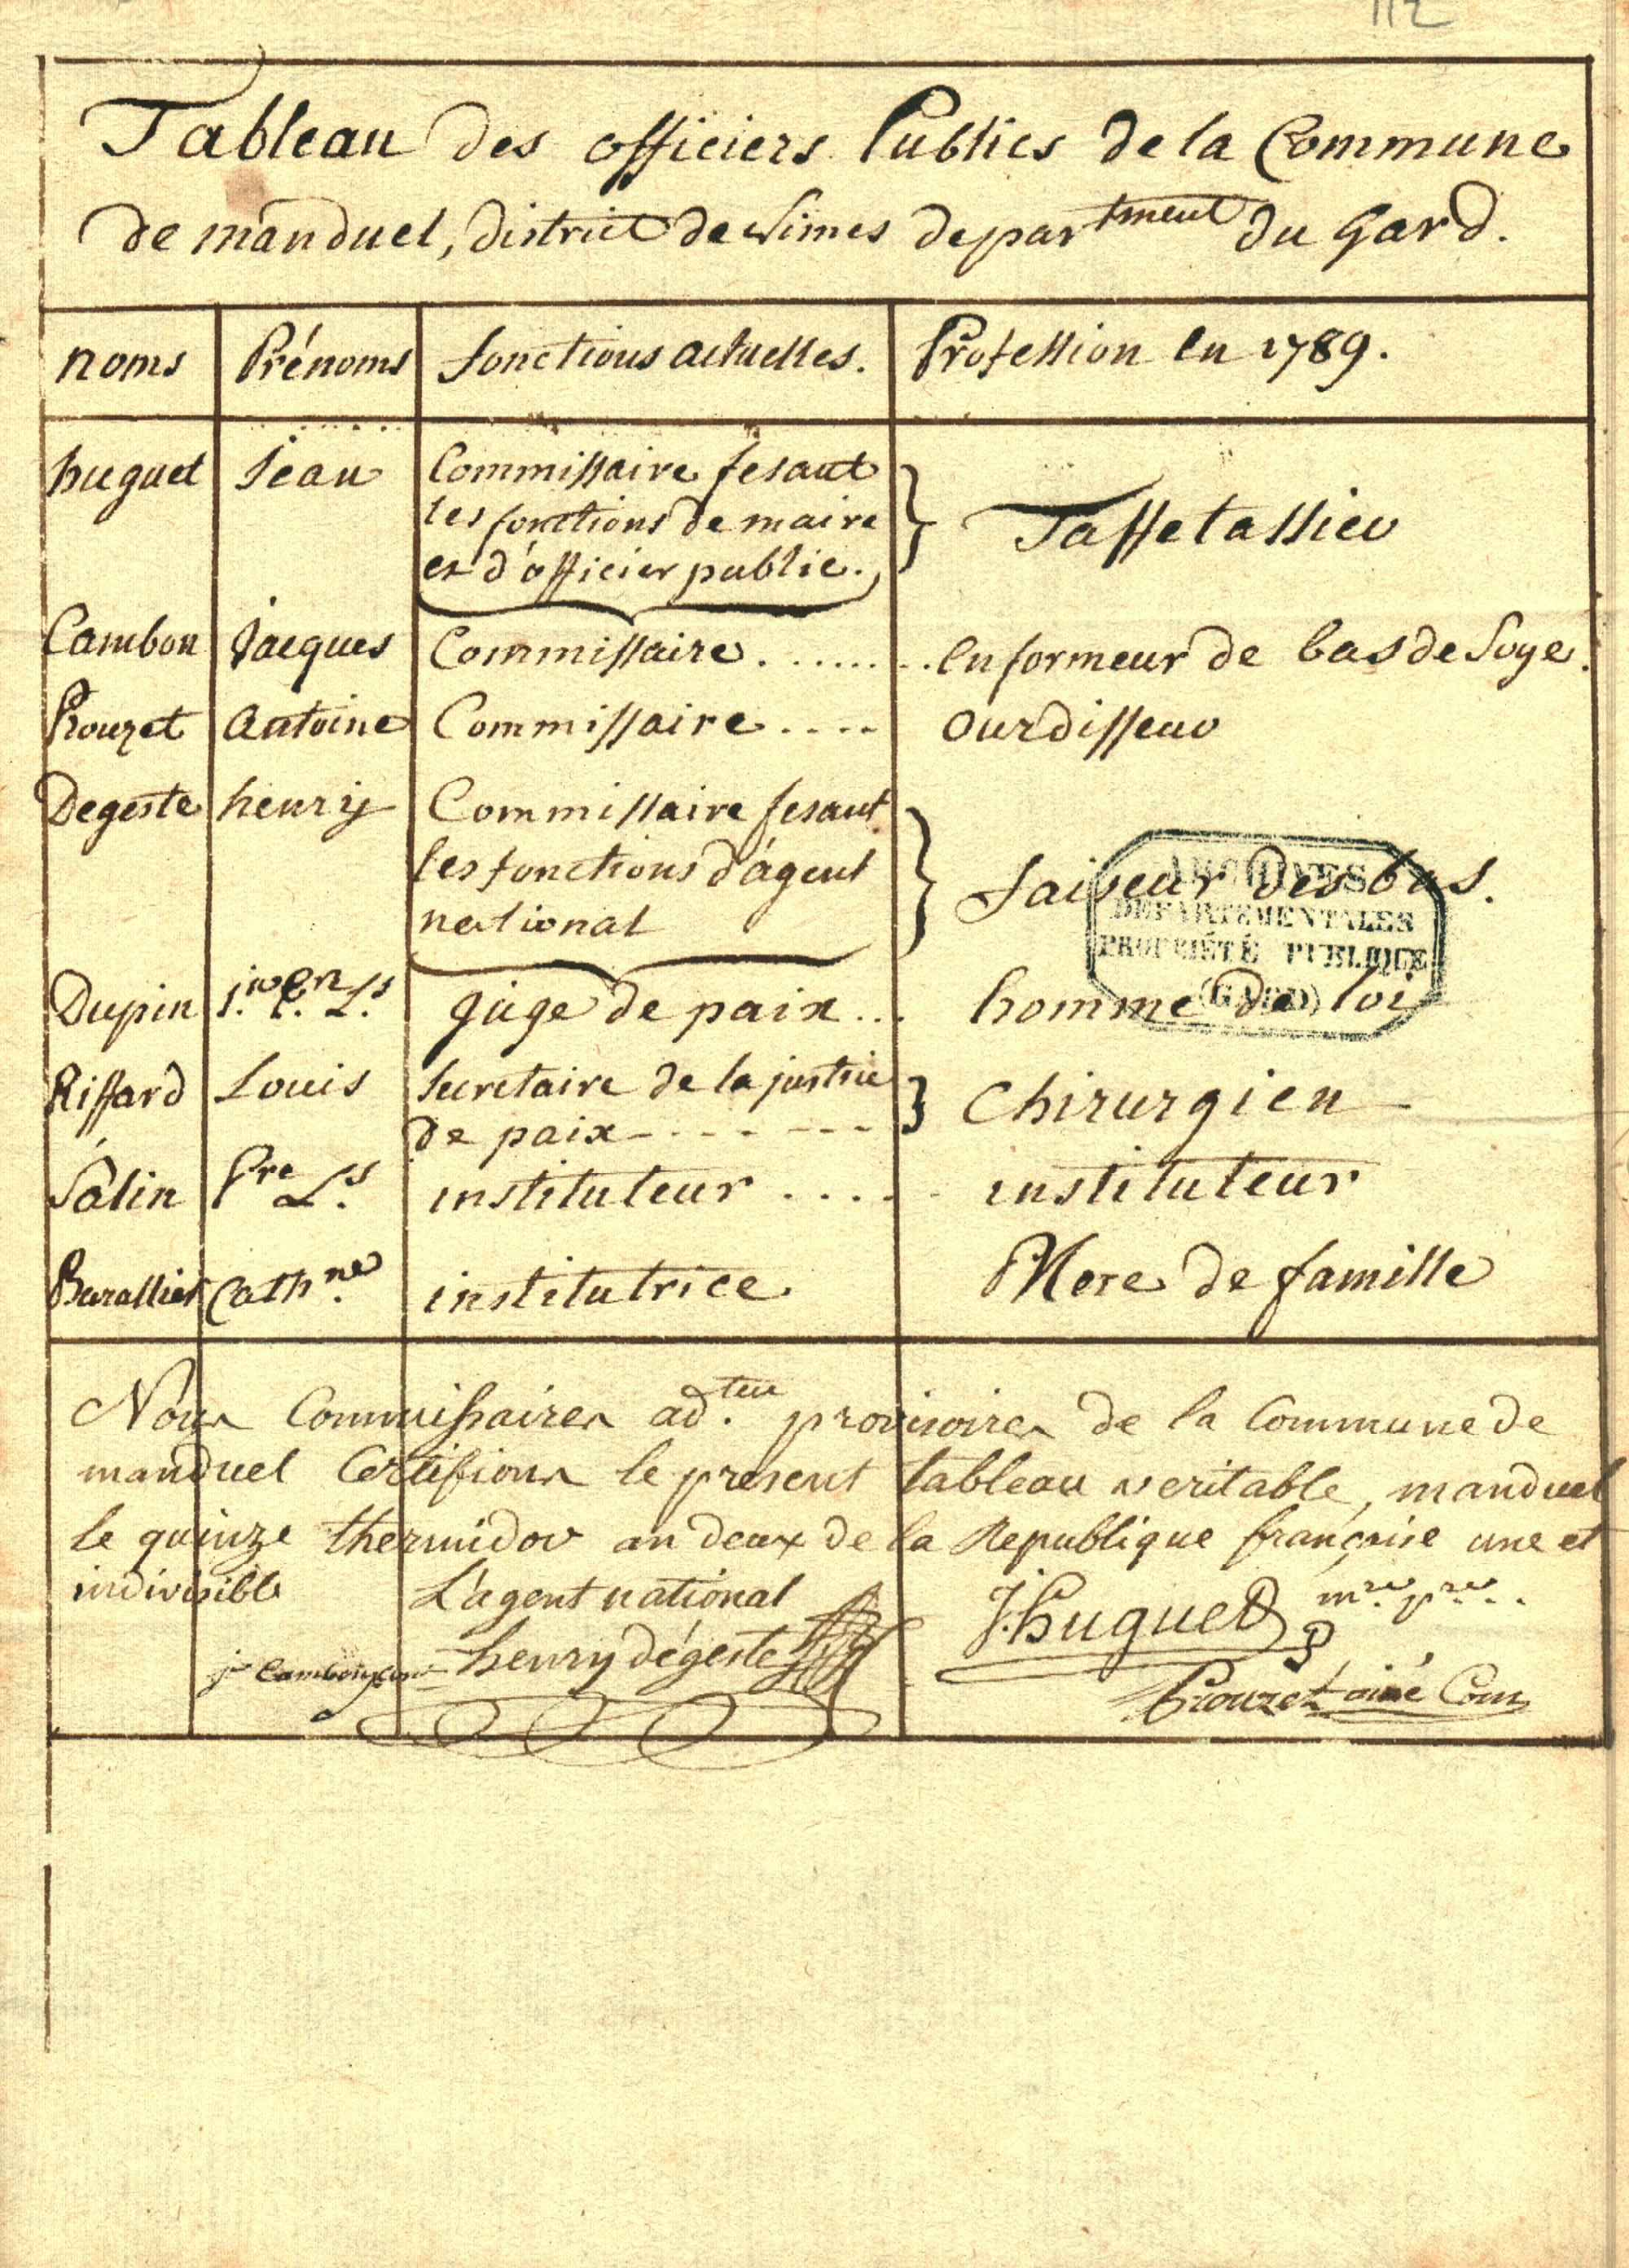 112
Tableau des officiers Publics de la Commune
de manduel, district de Nimes department du Gard.
noms Prénoms fonctions actuelles. Profession en 1789.
huguet Jean Commissaire fesant
les fonctions de maire
et d'officier public. Taffetassier
Cambon Jacques Commissaire ........ enformeur de bas de Soye.
Prouzet antoine Commissaire .... ourdisseur
Degeste henry Commissaire fesant
les fonctions d'agent
national faiseur des bas.
ARCHIVES
DÉPARTEMENTALES
PROPRIÉTÉ PUBLIQUE
(GARD)
Dupin L.s juge de paix ... homme de loi
Riffard Louis Secretaire de la justice
de paix ------- Chirurgien
Sâlin Pre L.s instituteur ..... instituteur
Barallier Cath.ne institutrice Mere de famille
Nous Commissaires ad.teu provisoires de la Commune de
manduel Certifions le present tableau veritable, manduel
le quinze thermidor an deux de la Republique française une et
indivisible L'agent national J. huguet m.re p.re
j. Cambon henry dégeste
Prouzet ainé Com